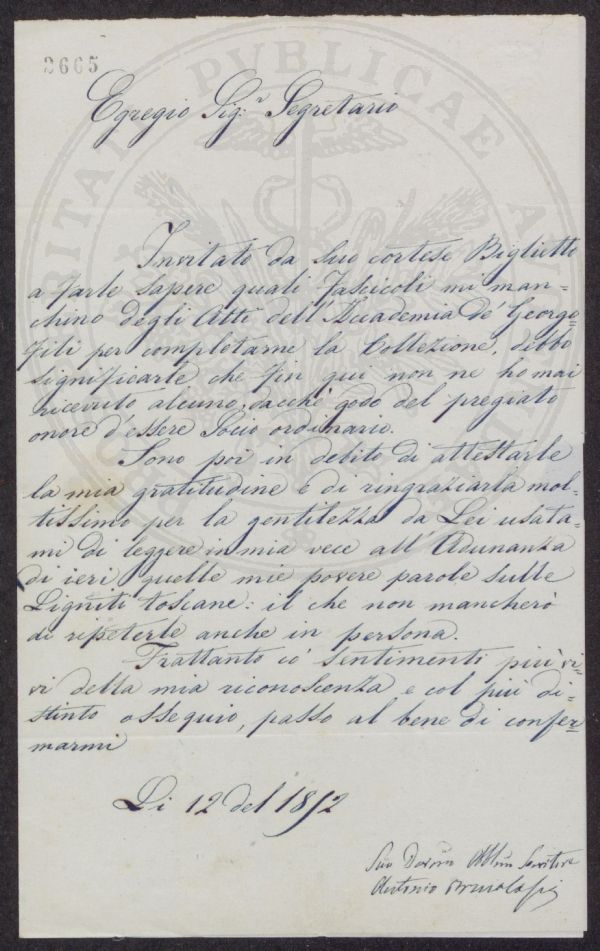 2665
PROSPERITATI PVBLICAE AVGENDAE
Egregio Sig.r Segretario
Invitato da suo cortese Biglietto
a farle sapere quali Fascicoli mi man=
chino degli Atti dell'Accademia de' Georgo=
fili per completarne la Collezione, debbo
significarle che fin qui non ne hò mai
ricevuto alcuno, dacchè godo del pregiato
onore d'essere Socio ordinario.
Sono poi in debito di attestarle
la mia gratitudine e di ringraziarla mol=
tissimo per la gentilezza da Lei usata=
mi di leggere in mia vece all'Adunanza
di ieri quelle mie povere parole sulle
Ligniti toscane: il che non mancherò
di ripeterle anche in persona.
Frattanto co' sentimenti più vi=
vi della mia riconoscenza e col più di=
stinto ossequio, passo al bene di confer=
marmi
Li 12 del 1852
Suo Devmo Obblmo Servitore
Antonio